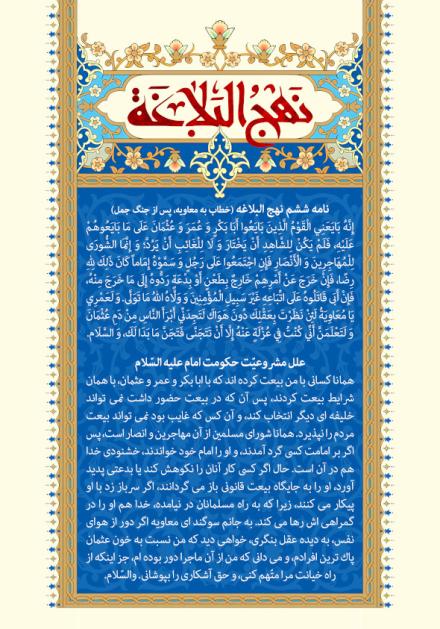 نَهجُ البَلاغَة
نامه ششم نهج البلاغه (خطاب به معاویه، پس از جنگ جمل)
إِنَّهُ بَايَعَنِي الْقَوْمُ الَّذِينَ بَايَعُوا أَبَا بَكْرٍ وَ عُمَرَ وَ عُثْمَانَ عَلَى مَا بَايَعُوهُمْ
عَلَيْهِ، فَلَمْ يَكُنْ لِلشَّاهِدِ أَنْ يَخْتَارَ وَ لَا لِلْغَائِبِ أَنْ يَرُدَّ؛ وَ إِنَّمَا الشُّورَى
لِلْمُهَاجِرِينَ وَ الْأَنْصَارِ فَإِنِ اجْتَمَعُوا عَلَى رَجُلٍ وَ سَمَّوْهُ إِمَاماً كَانَ ذَلِكَ لِلَّهِ
رِضًا، فَإِنْ خَرَجَ عَنْ أَمْرِهِمْ خَارِجٌ بِطَعْنٍ أَوْ بِدْعَةٍ رَدُّوهُ إِلَى مَا خَرَجَ مِنْهُ،
فَإِنْ أَبَى قَاتَلُوهُ عَلَى اتِّبَاعِهِ غَيْرَ سَبِيلِ الْمُؤْمِنِينَ وَ وَلَّاهُ اللَّهُ مَا تَوَلَّى. وَ لَعَمْرِي
يَا مُعَاوِيَةُ لَئِنْ نَظَرْتَ بِعَقْلِكَ دُونَ هَوَاكَ لَتَجِدَنِّي أَبْرَأَ النَّاسِ مِنْ دَمِ عُثْمَانَ
وَ لَتَعْلَمَنَّ أَنِّي كُنْتُ فِي عُزْلَةٍ عَنْهُ إِلَّا أَنْ تَتَجَنَّى فَتَجَنَّ مَا بَدَا لَكَ، وَ السَّلَام.
علل مشروعیّت حکومت امام علیه السّلام
همانا کسانی با من بیعت کرده اند که با ابا بکر و عمر و عثمان، با همان
شرایط بیعت کردند، پس آن که در بیعت حضور داشت نمی تواند
خلیفه ای دیگر انتخاب کند، و آن کس که غایب بود نمی تواند بیعت
مردم را نپذیرد. همانا شورای مسلمین از آن مهاجرین و انصار است، پس
اگر بر امامت کسی گرد آمدند، و او را امام خود خواندند، خشنودی خدا
هم در آن است. حال اگر کسی کار آنان را نکوهش کند یا بدعتی پدید
آورد، او را به جایگاه بیعت قانونی باز می گردانند، اگر سر باز زد با او
پیکار می کنند، زیرا که به راه مسلمانان در نیامده، خدا هم او را در
گمراهی اش رها می کند. به جانم سوگند ای معاویه اگر دور از هوای
نفس، به دیده عقل بنگری، خواهی دید که من نسبت به خون عثمان
پاک ترین افرادم، و می دانی که من از آن ماجرا دور بوده ام، جز اینکه از
راه خیانت مرا متّهم کنی، و حق آشکاری را بپوشانی. والسّلام.